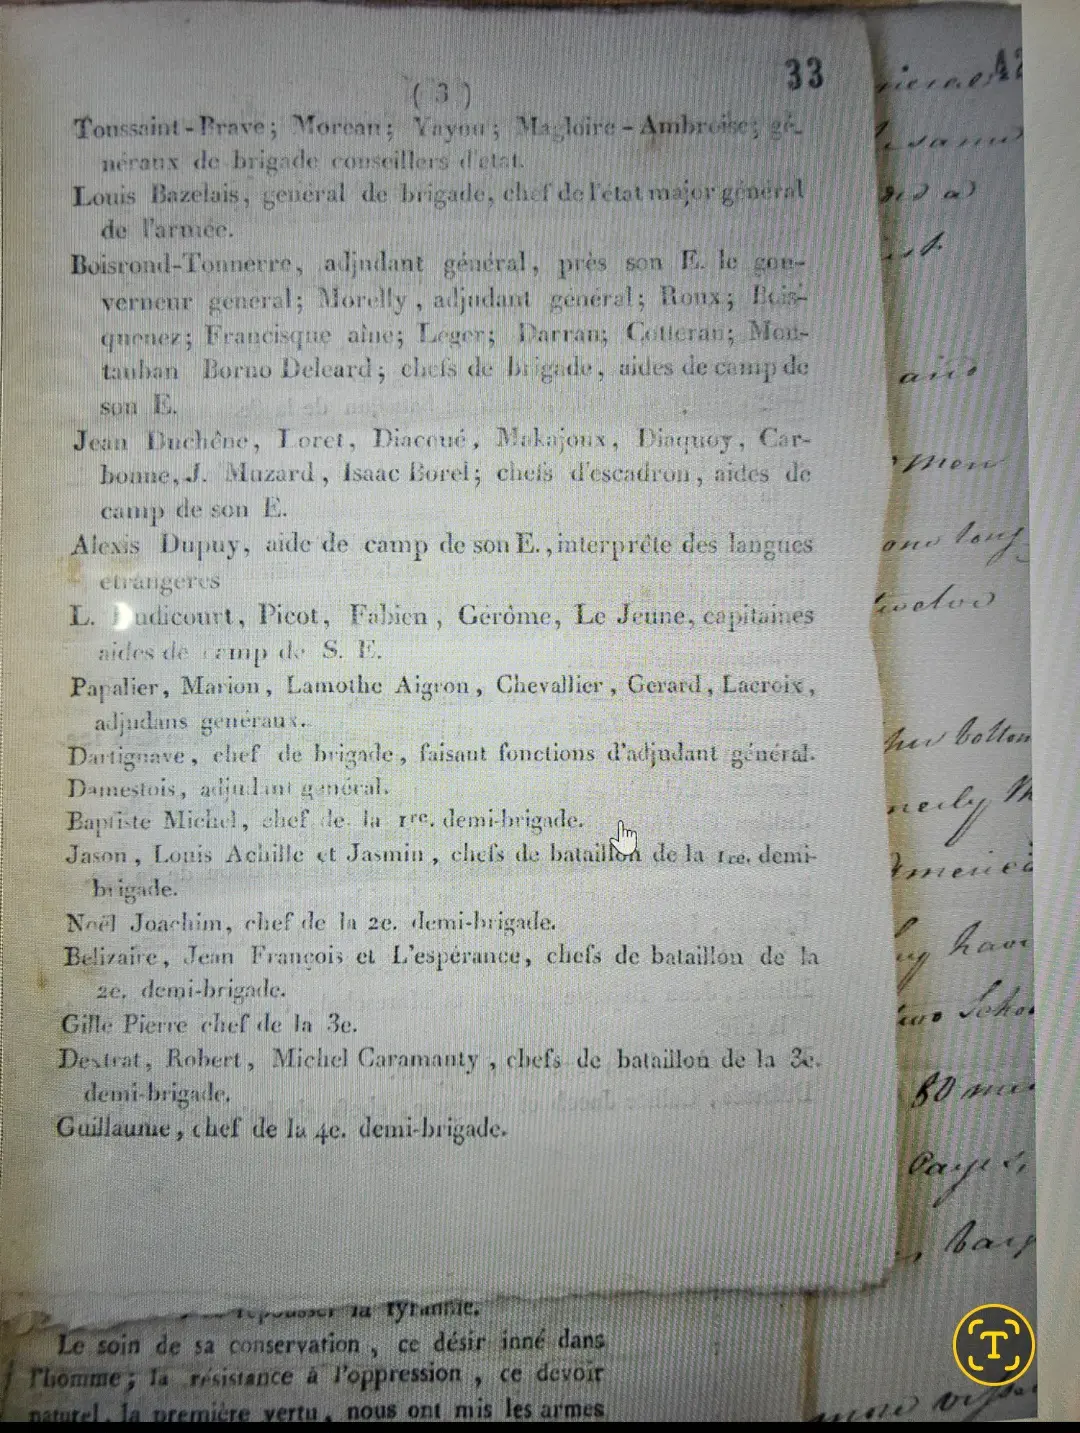 33
( 3 )
Toussaint-Brave; Moreau; Yayou; Magloire-Ambroise; gé-
néraux de brigade conseillers d'etat.
Louis Bazelais, general de brigade, chef de l'état major général
de l'armée.
Boisrond-Tonnerre, adjudant général, près son E. le gou-
verneur general; Morelly, adjudant général; Roux; Bois-
quenez; Francisque aîne; Leger; Darran; Cotteran; Mon-
tauban Borno Deleard; chefs de brigade, aides de camp de
son E.
Jean Duchêne, Loret, Diacoué, Makajoux, Diaquoy, Car-
bonne, J. Muzard, Isaac Borel; chefs d'escadron, aides de
camp de son E.
Alexis Dupuy, aide de camp de son E., interprête des langues
etrangeres
L. Picot, Fabien, Gérôme, Le Jeune, capitaines
aides de camp de S. E.
Papalier, Marion, Lamothe Aigron, Chevallier, Gerard, Lacroix,
adjudans generaux.
Dartignave, chef de brigade, faisant fonctions d'adjudant général.
Damestois, adjudant général.
Baptiste Michel, chef de la 1re. demi-brigade.
Jason, Louis Achille et Jasmin, chefs de bataillon de la 1re. demi-
brigade.
Noël Joachim, chef de la 2e. demi-brigade.
Belizaire, Jean François et L'espérance, chefs de bataillon de la
2e. demi-brigade.
Gille Pierre chef de la 3e.
Dextrat, Robert, Michel Caramanty, chefs de bataillon de la 3e.
demi-brigade.
Guillaume, chef de la 4e. demi-brigade.
repousser la tyrannie.
Le soin de sa conservation, ce désir inné dans
l'homme; la résistance à l'oppression, ce devoir
naturel, la première vertu, nous ont mis les armes
42
and
men
one long
twelve
her bottom
have
80
bary